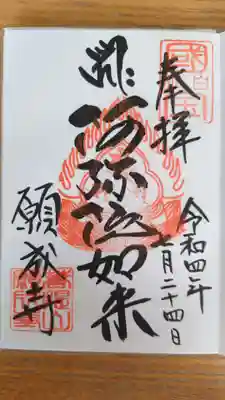 奉拝
令和四年
七月二十四日
阿弥陀如来
願成寺